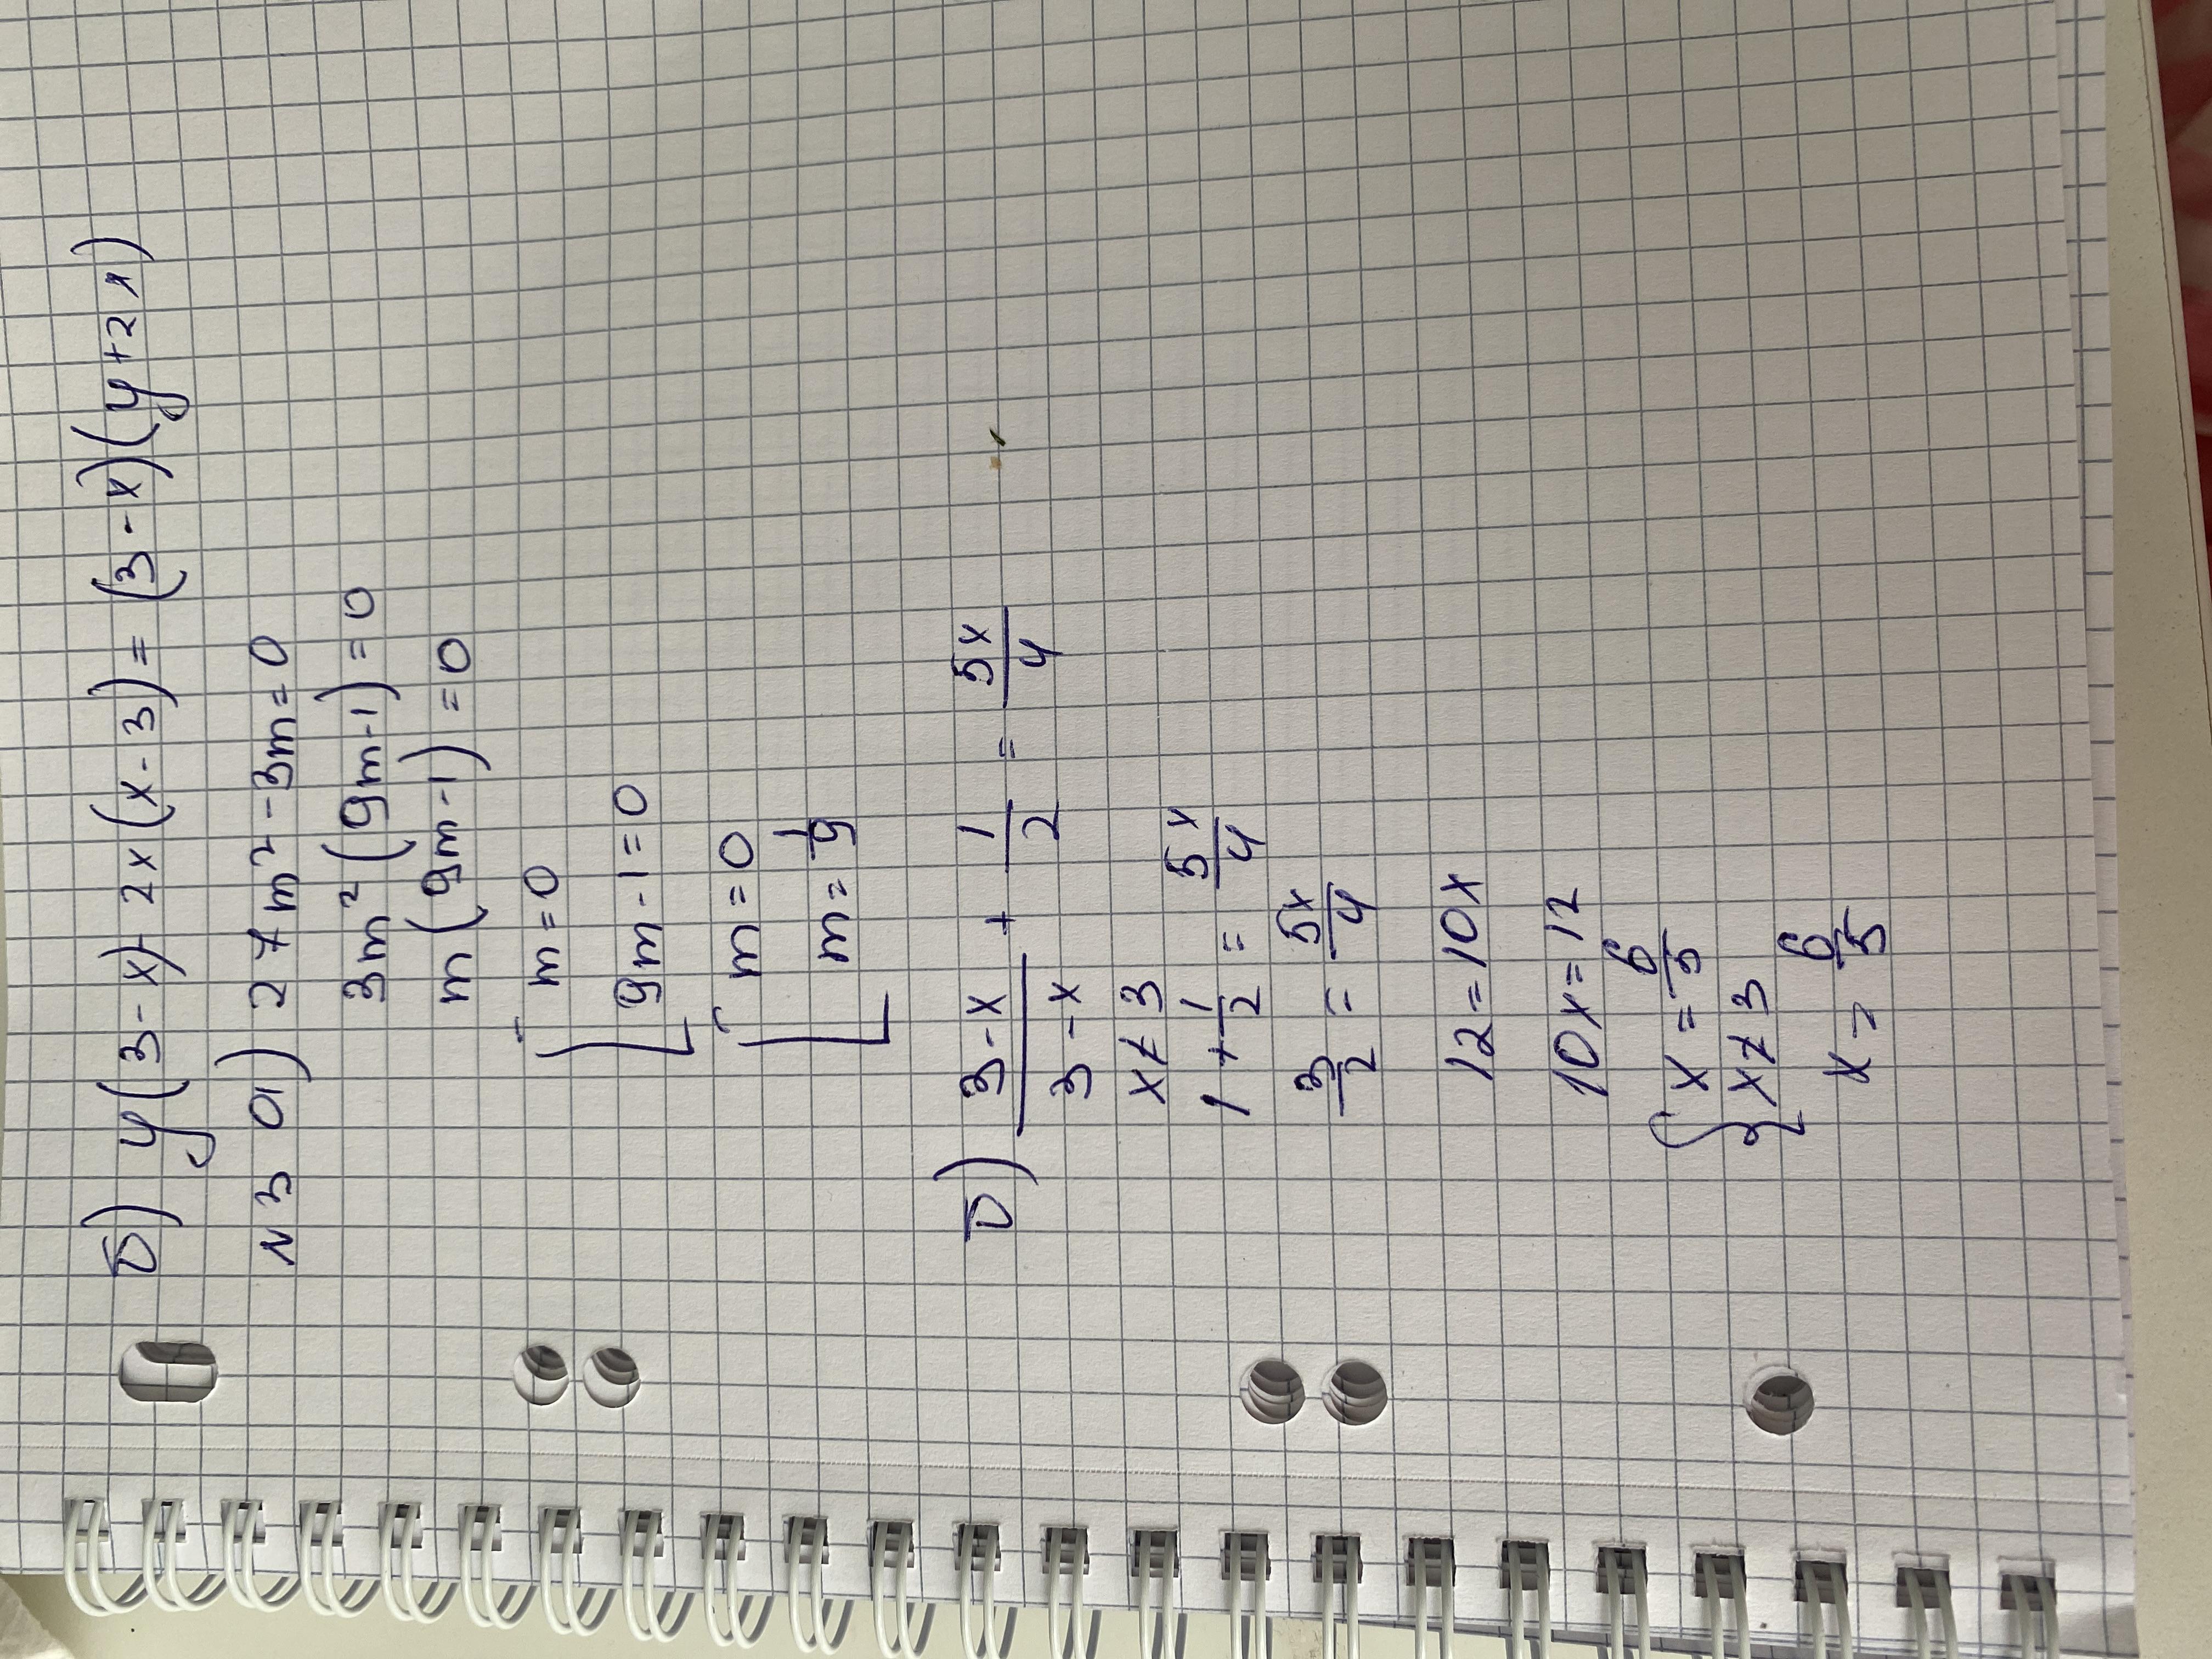 б) y(3-x)-2x(x-3)=(3-x)(y+2x)
N3 а) 27m²-3m=0
3m²(9m-1)=0
m(9m-1)=0
[m=0
9m-1=0
[m=0
m=1/9
б) (3-x)/(3-x) + 1/2 = 5x/4
x≠3
1+1/2=5x/4
3/2=5x/4
12=10x
10x=12
{x=6/5
x≠3
x=6/5